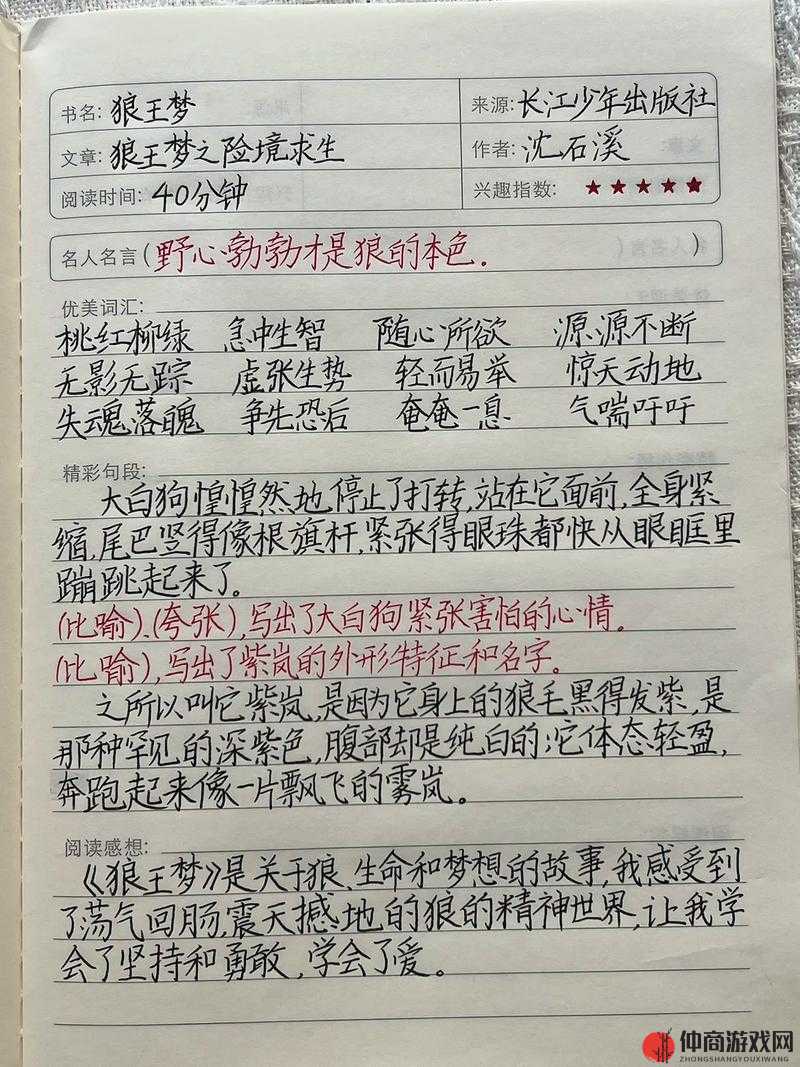 书名: 狼王梦
来源: 长江少年出版社
文章: 狼王梦之险境求生
作者: 沈石溪
阅读时间: 40分钟
兴趣指数: ★★★★★
名人名言(野心勃勃才是狼的本色. )
优美词汇:
桃红柳绿 急中生智 随心所欲 源源不断
无影无踪 虚张生势 轻而易举 惊天动地
失魂落魄 争先恐后 奄奄一息 气喘吁吁
精彩句段:
大白狗惶惶然地停止了打转,站在它面前,全身紧
缩,尾巴竖得像根旗杆,紧张得眼珠都快从眼眶里
蹦跳起来了。
(比喻)、(夸张),写出了大白狗紧张害怕的心情。
(比喻),写出了紫岚的外形特征和名字。
之所以叫它紫岚,是因为它身上的狼毛黑得发紫,是
那种罕见的深紫色,腹部却是纯白的;它体态轻盈,
奔跑起来像一片飘飞的雾岚。
阅读感想:
《狼王梦》是关于狼、生命和梦想的故事,我感受到
了荡气回肠,震天撼地的狼的精神世界,让我学
会了坚持和勇敢,学会了爱。
仲商游戏网
ZHONGSHANGYOUXIWANG